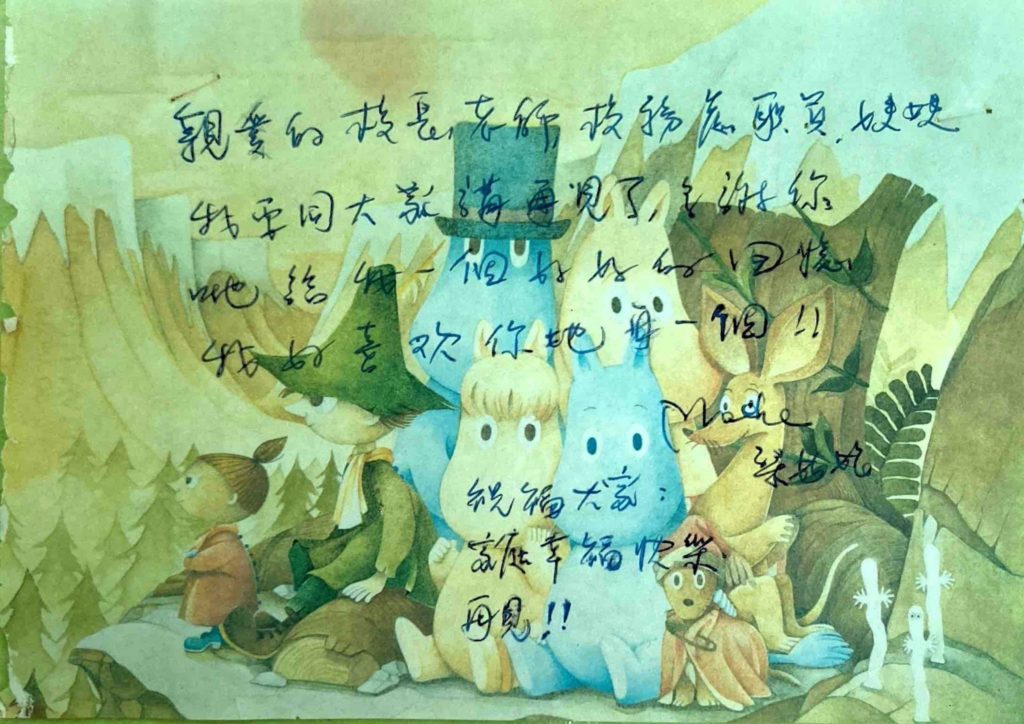 親愛的校長, 老師, 校務處職員, 嬸嬸
我要同大家講再見了, 多謝你
哋給我一個好好的回憶,
我好喜歡你地每一個!!
祝福大家:
家庭幸福快樂.
再見!!